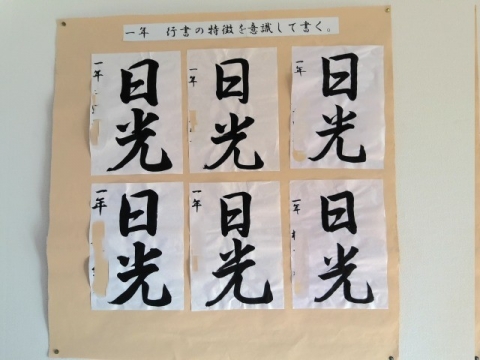 一年 行書の特徴を意識して書く。
日光
一年
日光
一年
日光
一年
日光
一年
日光
一年
日光
一年